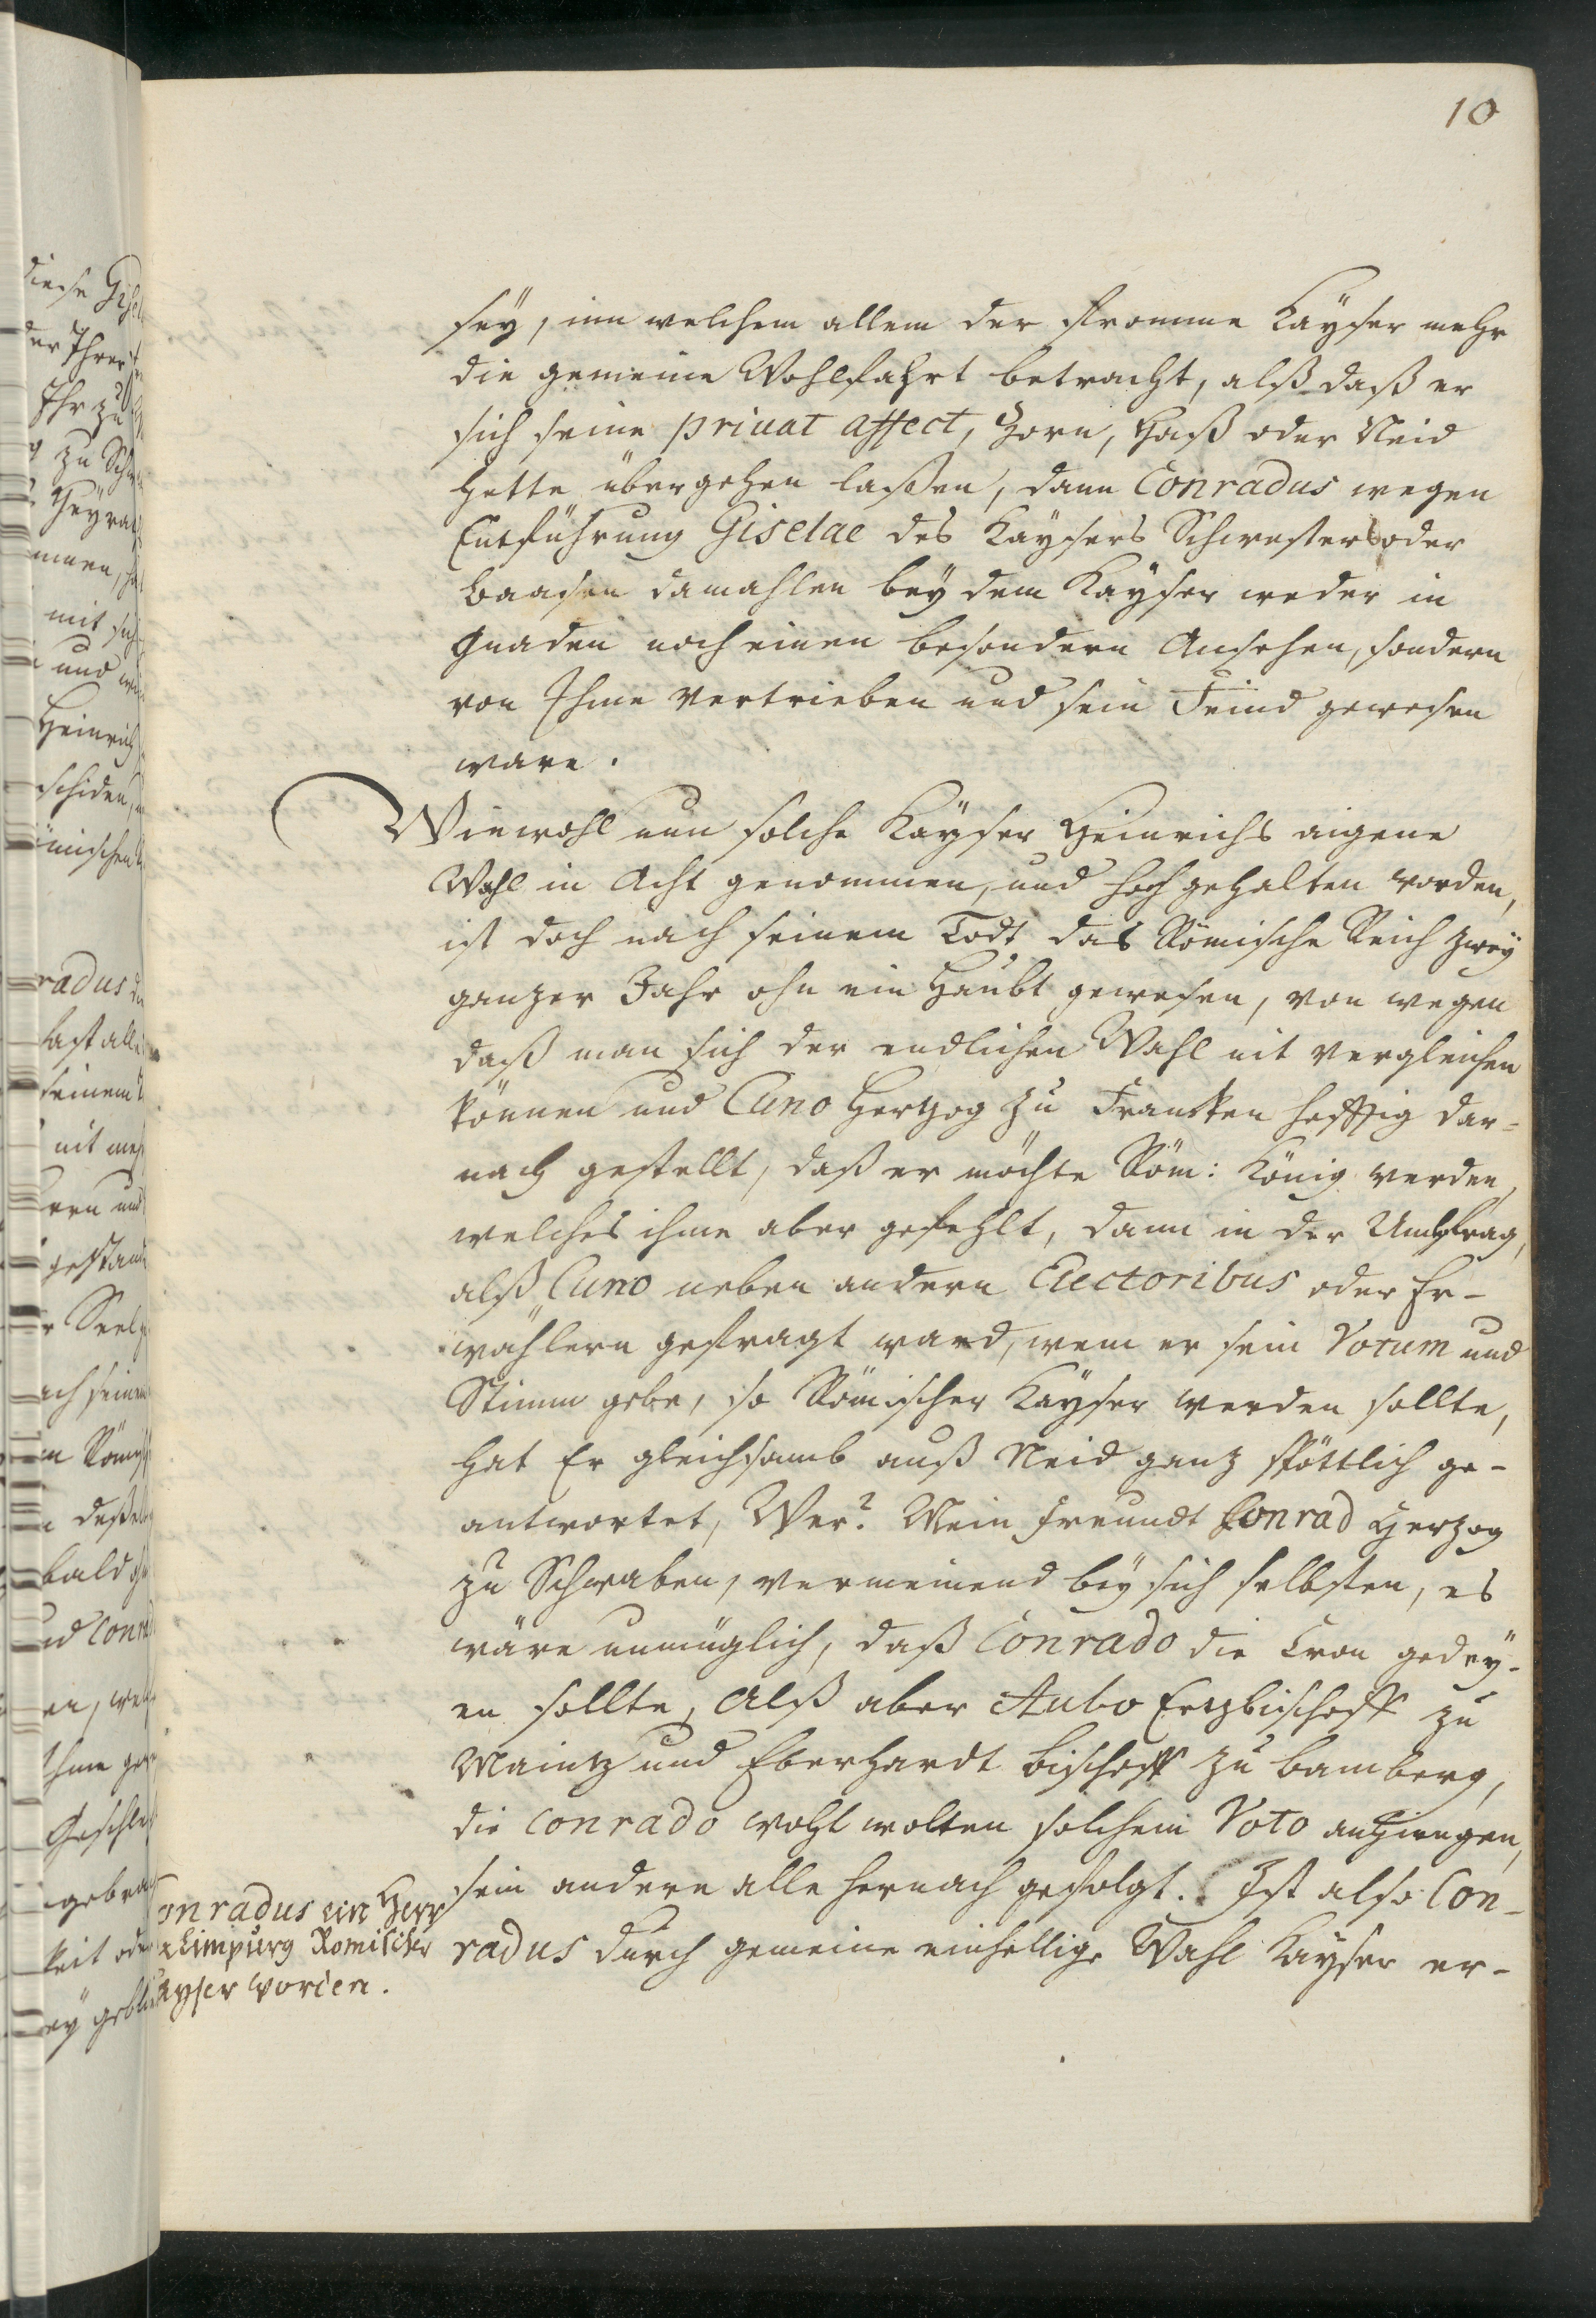 10
sey, inn welchem allem der fromme Kayser mehr
die gemeine Wohlfahrt betracht, alß daß er
sich seine privat affect, Zorn, Haß oder Neid
hette übergehen laßen, dann Conradus wegen
Entführung Giselae des Kaysers Schwesters oder
Baasen damahlen bey dem Kayser weder in
Gnaden noch einen besondern Ansehen, sondern
von Ihme vertrieben und sein Feind gewesen
ware.
Wiewohl nun solche Kayser Heinrichs aigene
Wahl in Acht genommen, und hoch gehalten worden,
ist doch nach seinem Todt das Römische Reich zwey
ganzer Jahr ohn ein Haubt gewesen, von wegen
daß man sich der endlichen Wahl nit vergleichen
können und Cuno Hertzog zu Francken hefftig dar-
nach gestellt, daß er möchte Röm: König werden,
welches ihme aber gefehlt, dann in der Umbfrag,
alß Cuno neben andern Electoribus oder Er-
wählern gefragt ward, wem er sein Votum und
Stimm gebe, so Römischer Kayser werden sollte,
hat Er gleichsamb auß Neid ganz spöttlich ge-
antwortet, Wer? Mein freundt Conrad Herzog
zu Schwaben, vermeinend bey sich selbsten, es
wäre unmüglich, daß Conrado die Cron gedey-
en sollte, Alß aber Aubo Ertzbischoff zu
Maintz und Eberhardt Bischoff zu Bamberg,
die Conrado wohl wolten solchem Voto anhiengen,
sein andere alle hernach gefolgt. Ist also Con-
radus durch gemeine einhellige Wahl Kayser er-
onradus ein Herr
Limpurg Römischer
ayser worden.